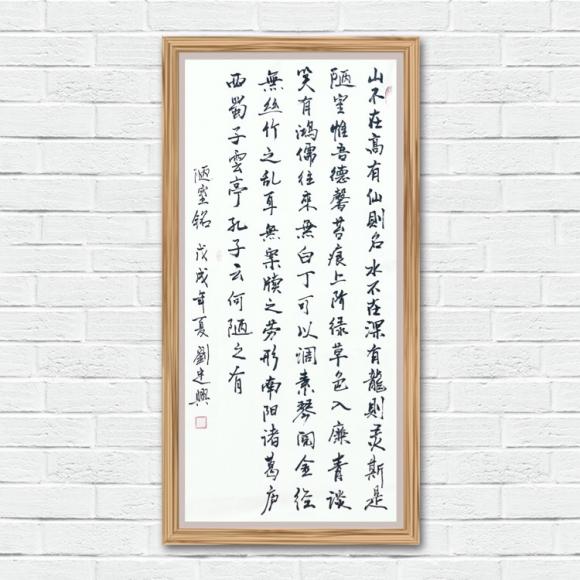 山不在高有仙則名水不在深有龍則灵斯是
陋室惟吾德馨苔痕上阶绿草色入廉青谈
笑有鸿儒往来無白丁可以调素琴阅金经
無丝竹之乱耳無案牍之劳形南阳诸葛庐
西蜀子雲亭孔子云何陋之有
陋室铭 戊戌年夏 劉建興